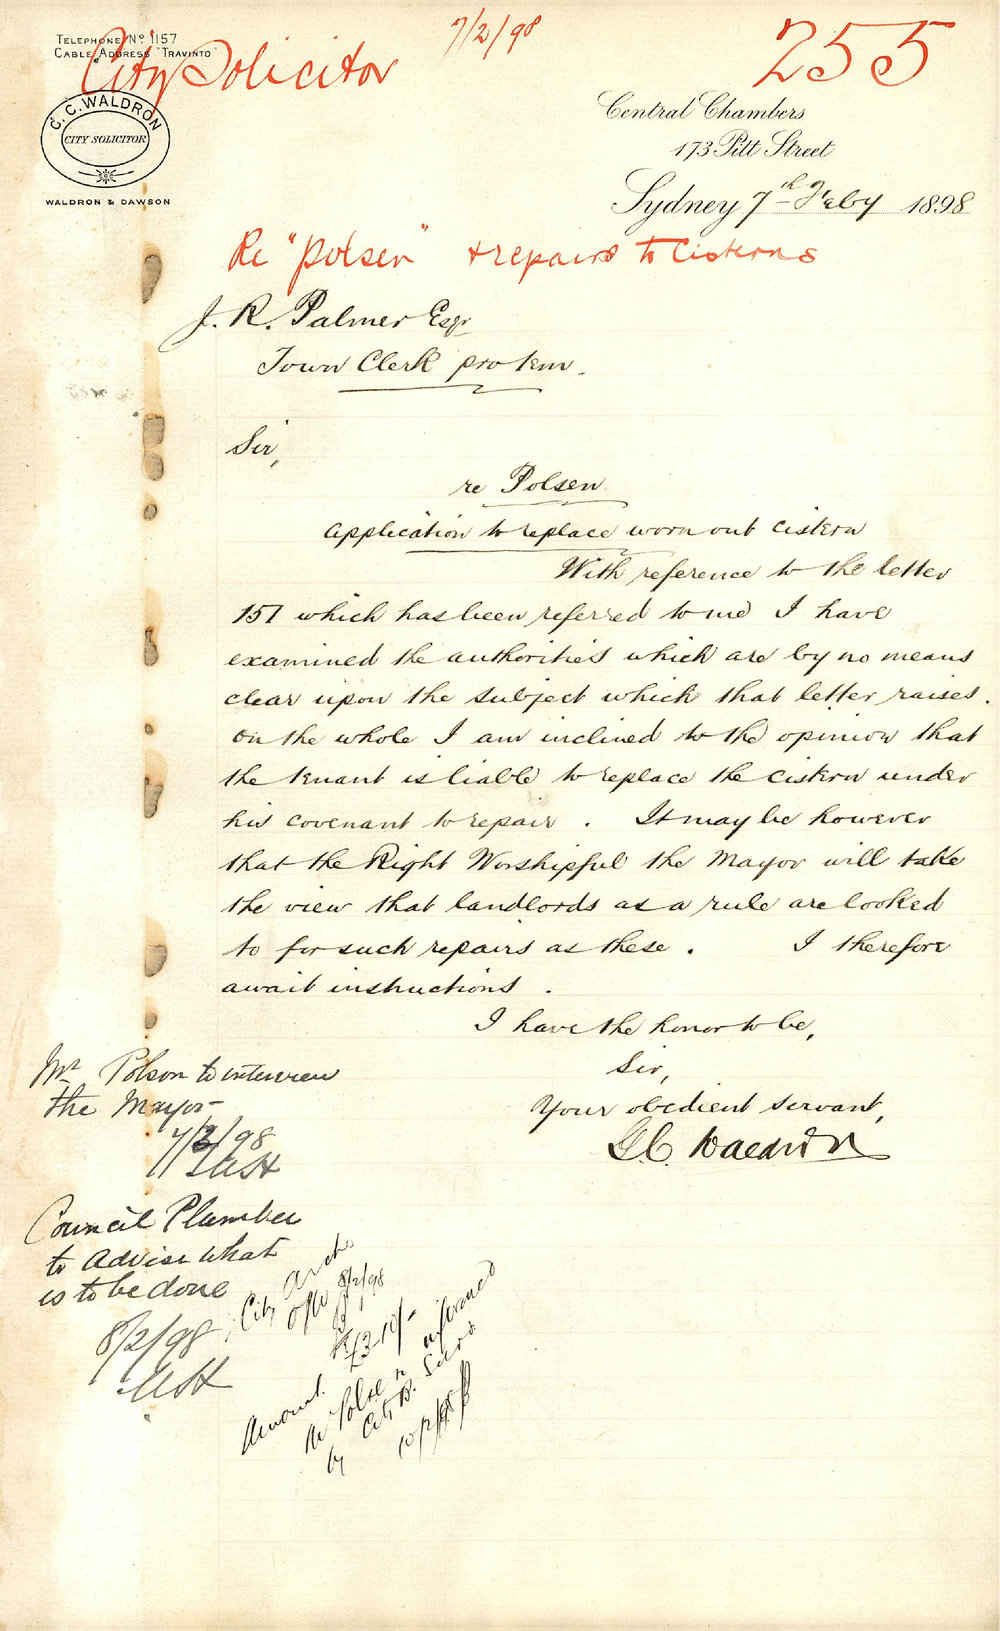 7/2/98
255
TELEPHONE No 1157
CABLE ADDRESS "TRAVINTO"
City Solicitor
C. C. WALDRON
CITY SOLICITOR
WALDRON & DAWSON
Central Chambers
173 Pitt Street
Sydney 7th Feby 1898
Re "Polsen" & repairs to Cisterns
J. R. Palmer Esqr
Town Clerk pro tem.
Sir,
re Polsen
Application to replace worn out cistern
With reference to the letter
151 which has been referred to me I have
examined the authorities which are by no means
clear upon the subject which that letter raises.
On the whole I am inclined to the opinion that
the tenant is liable to replace the cistern under
his covenant to repair. It may be however
that the Right Worshipful the Mayor will take
the view that landlords as a rule are looked
to for such repairs as these. I therefore
await instructions.
I have the honor to be,
Sir,
Your obedient servant,
C. C. Waldron
Mr Polson to interview
the Mayor
7/2/98
Council Plumber
to advise what
is to be done
8/2/98
City Arch.
8/2/98
£3-10/-
Amount.
Mr Polsen informed
by City B. Surv.